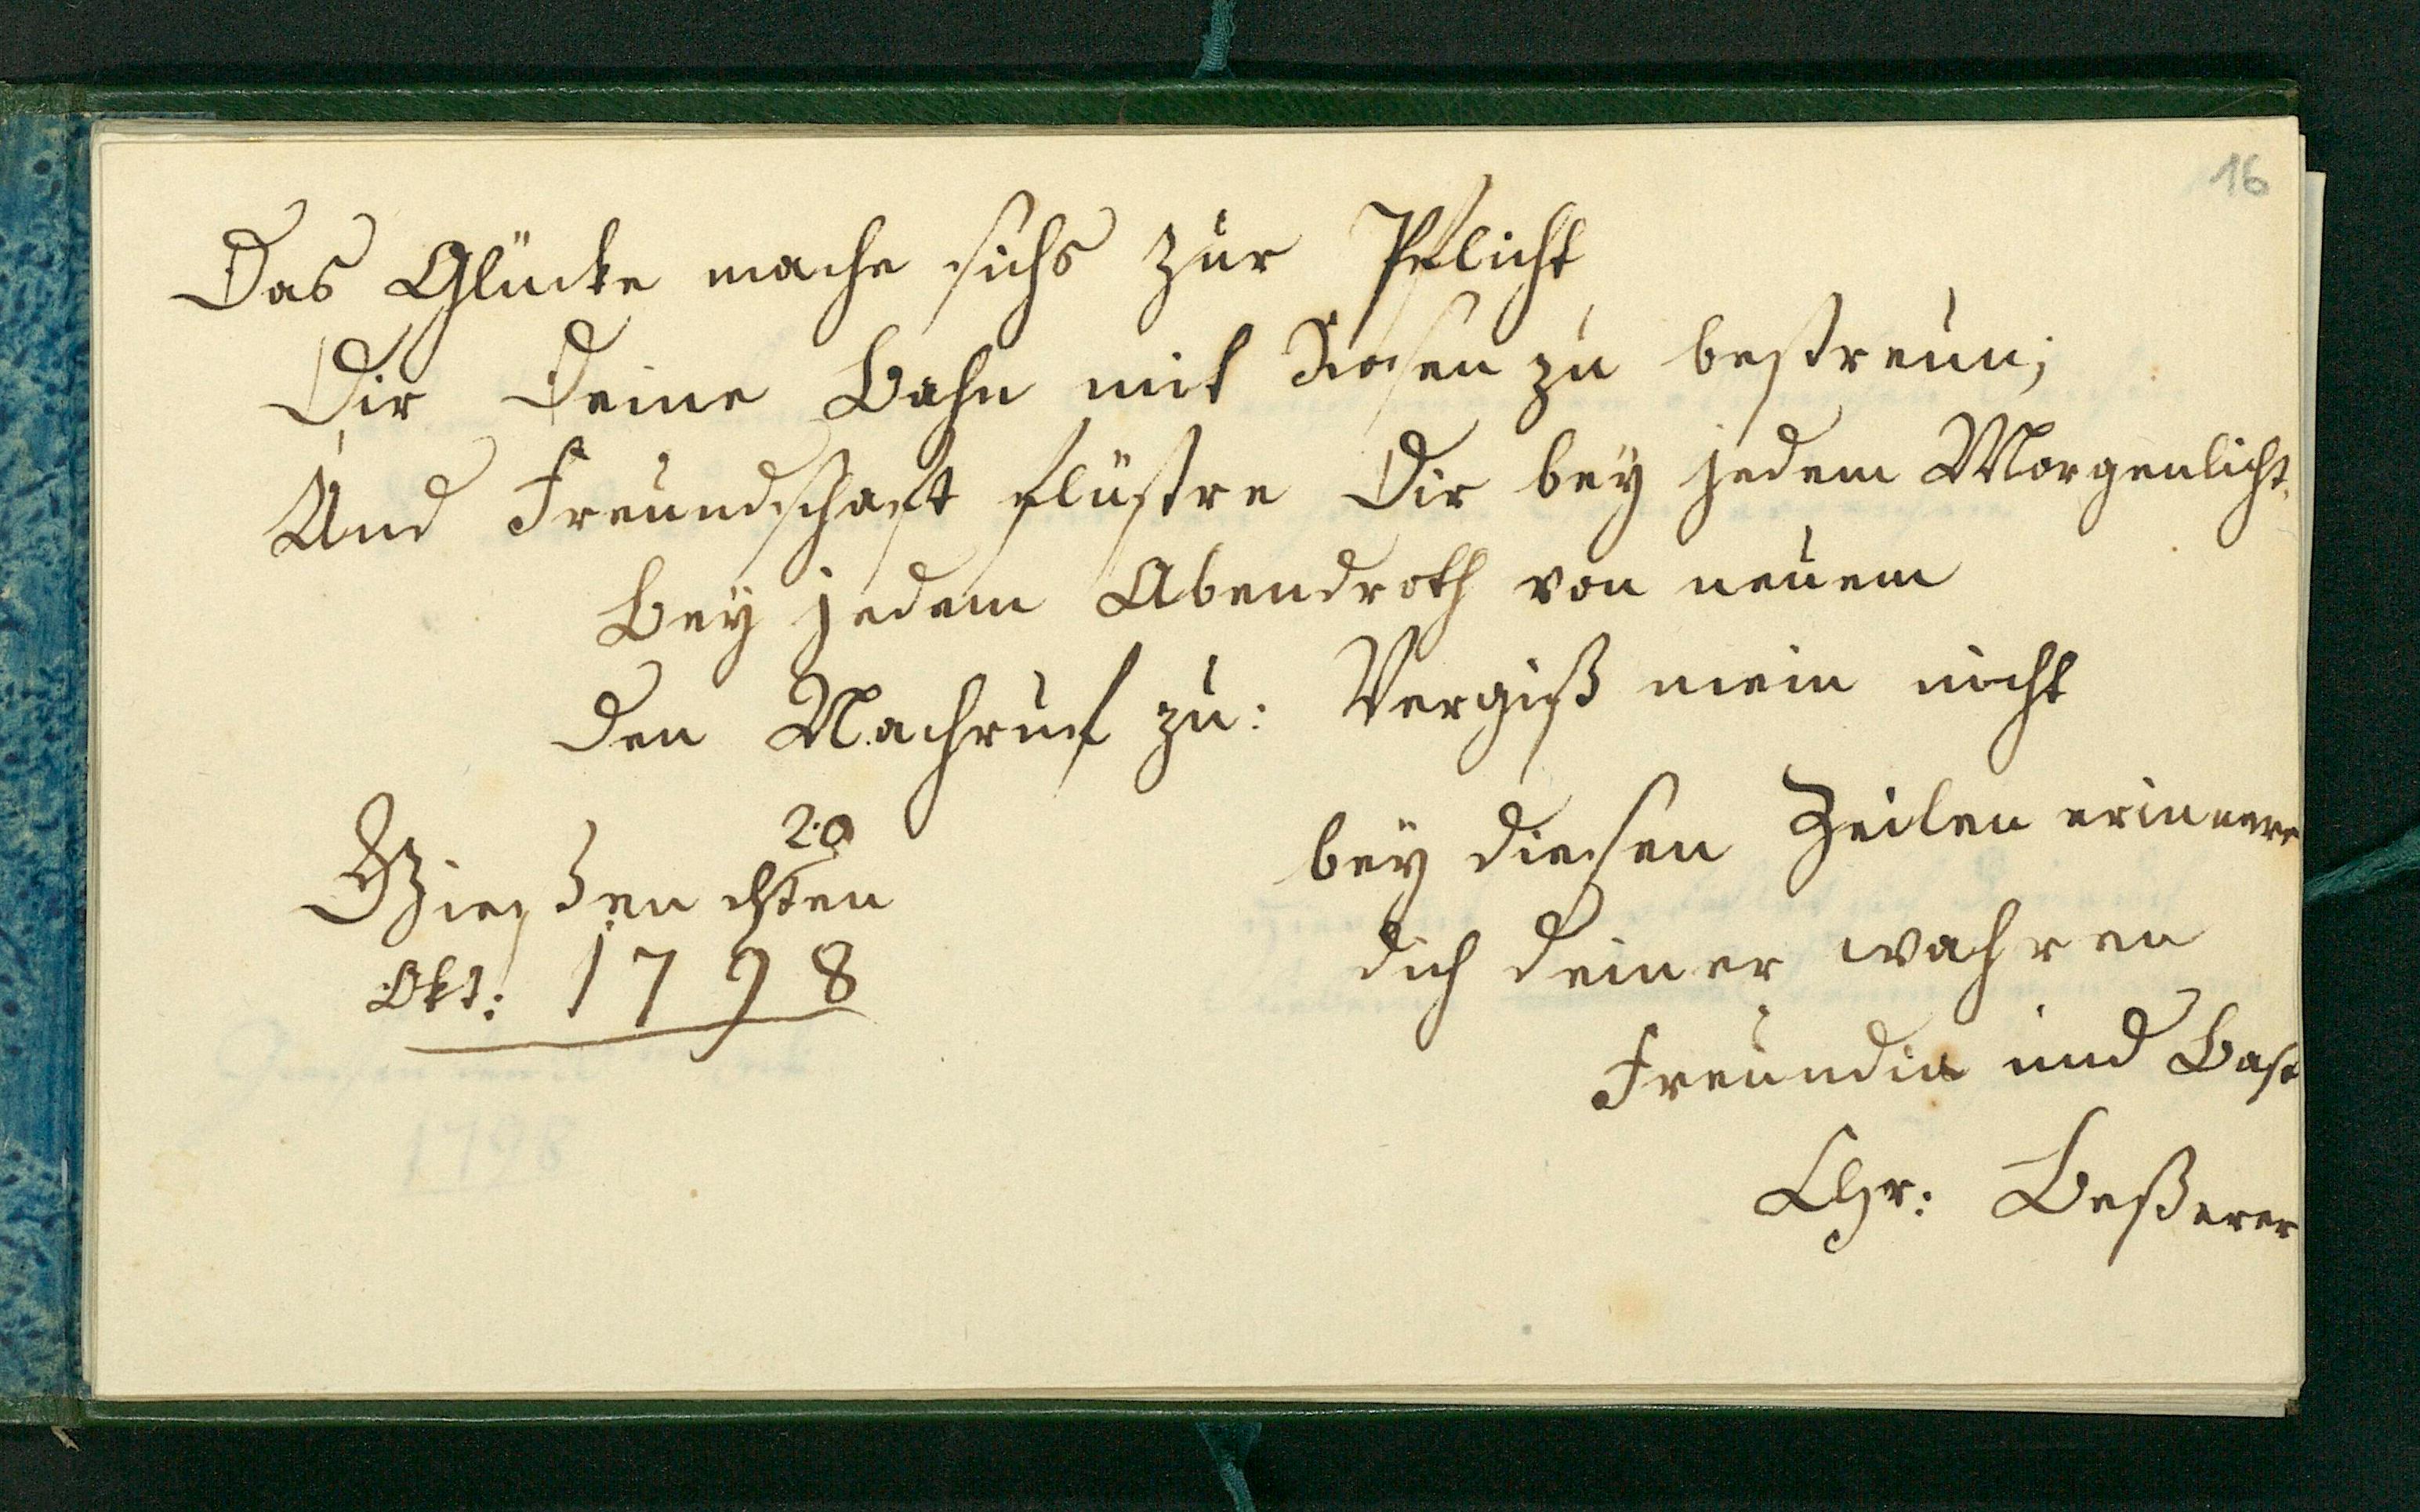 16
Das Glücke mache sichs zur Pflicht
Dir Deine Bahn mit Rosen zu bestreun;
Und Freundschaft flüstre Dir bey jedem Morgenlicht
Bey jedem Abendroth von neuem
Den Nachruf zu: Vergiß mein nicht
20
Gießen sten
Okt: 1798
bey diesen Zeilen erinnere
dich deiner wahren
Freundin und Base
Chr: Beßerer